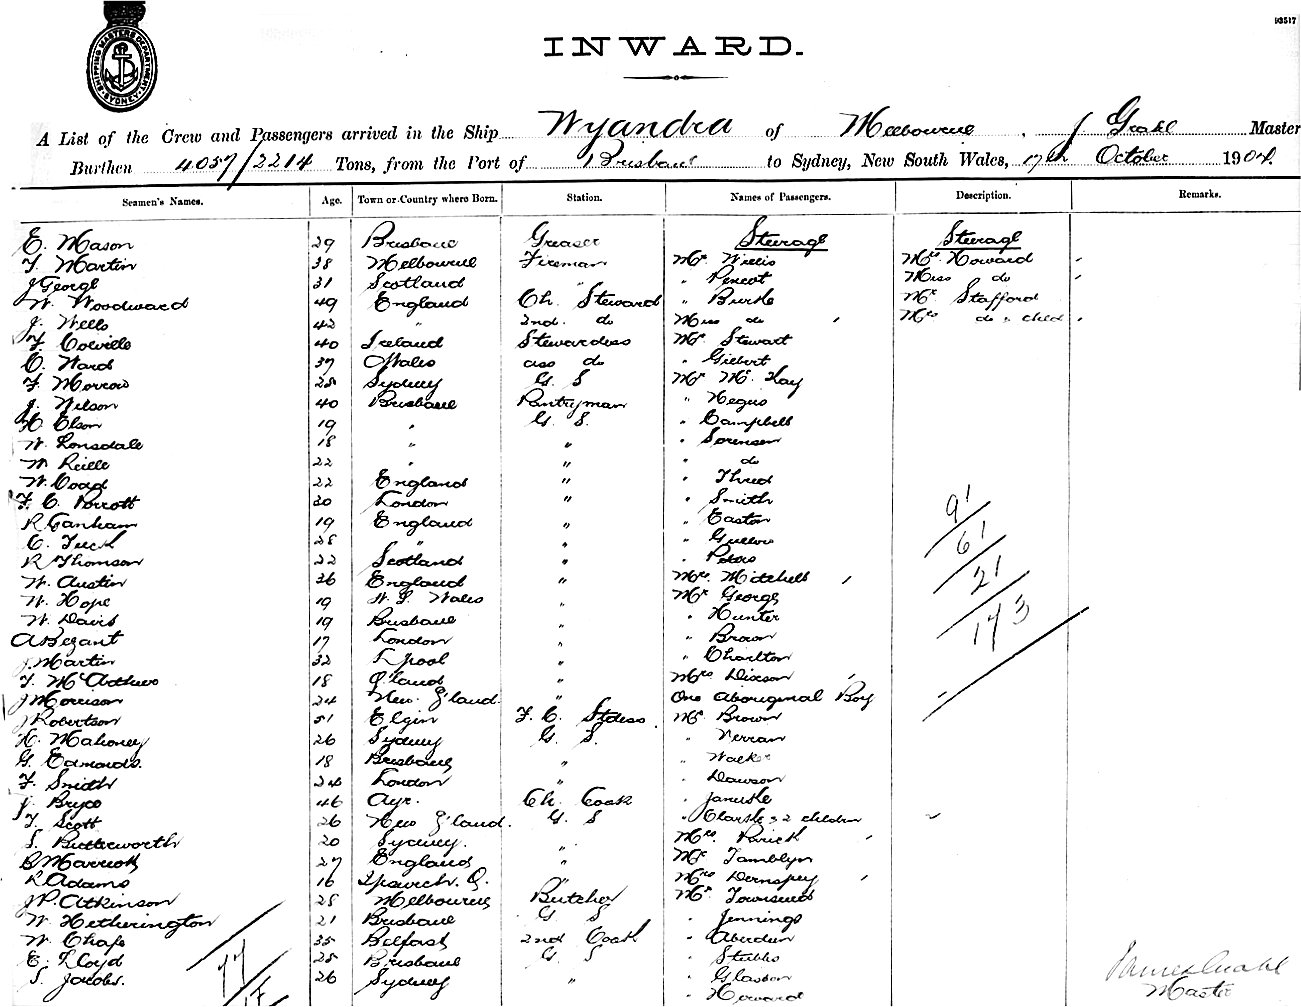 93517
SHIPPING MASTERS DEPARTMENT SYDNEY
INWARD.
A List of the Crew and Passengers arrived in the Ship Wyandra of Melbourne, J Grahl Master
Burthen 4057/2214 Tons, from the Port of Brisbane to Sydney, New South Wales, 17th October 1904
Seamen's Names. Age. Town or Country where Born. Station. Names of Passengers. Description. Remarks.
E. Mason 29 Brisbane Greaser Steerage Steerage
T. Martin 38 Melbourne Fireman Mr Willis Mrs Howard
J George 31 Scotland " " Miss do
W. Woodward 49 England Ch. Steward " Burke Mr Stafford
J. Wells 42 " 2nd. do Miss do Mrs do & child
Colville 40 Ireland Stewardess Mr Stewart
C. Ward 37 Wales ass do " Gilbert
F. Morrow 25 Sydney G. S Mr McKay
J. Nelson 40 Brisbane Pantryman " Negus
H. Elson 19 " G. S. " Campbell
W. Lonsdale 18 " " " Sorensen
W. 22 " " " do
W. Coad 22 England " "
F. C. Parrott 30 London " " Smith
R. Canham 19 England " " Easton 91
C. Tuck 28 " " " 61
R Thomson 22 Scotland " " Peters
W. Austin 36 England " Mrs Mitchell 21
W. Hope 19 N. S. Wales " Mr George
W. Davis 19 Brisbane " " Hunter 173
A Bezant 17 London " " Brown
J. Martin 32 L'pool " " Charlton
T. McAdhers 18 Q'land " Mrs Dixson
J Morrison 24 New Z'land " One Aboriginal Boy
J Robertson 51 Elgin F. C. Stdess. Mr Brown
H. Mahoney 26 Sydney G. S. " Verran
G. Edmonds. 18 Brisbane " " Walker
F. Smith 24 London " " Dawson
J. Bryce 46 Ayr. Ch. Cook "
T. Scott 26 New Z'land. G. S " Clarke & 2 children
S. Butterworth 20 Sydney. " Mrs
B Marriott 27 England " Mr Tamblyn
R Adams 16 Ipswich. Q. " Mrs Dempsey
J.P. Atkinson 25 Melbourne Butcher Mr Townsend
W. Hetherington 21 Brisbane G S " Jennings
W. Chafe 35 Belfast 2nd Cook " Aberdeen
E. Lloyd 25 Brisbane G S " Stubbs
S. Jacobs. 26 Sydney " " Glasson
77 " Howard
17
James Grahl
Master